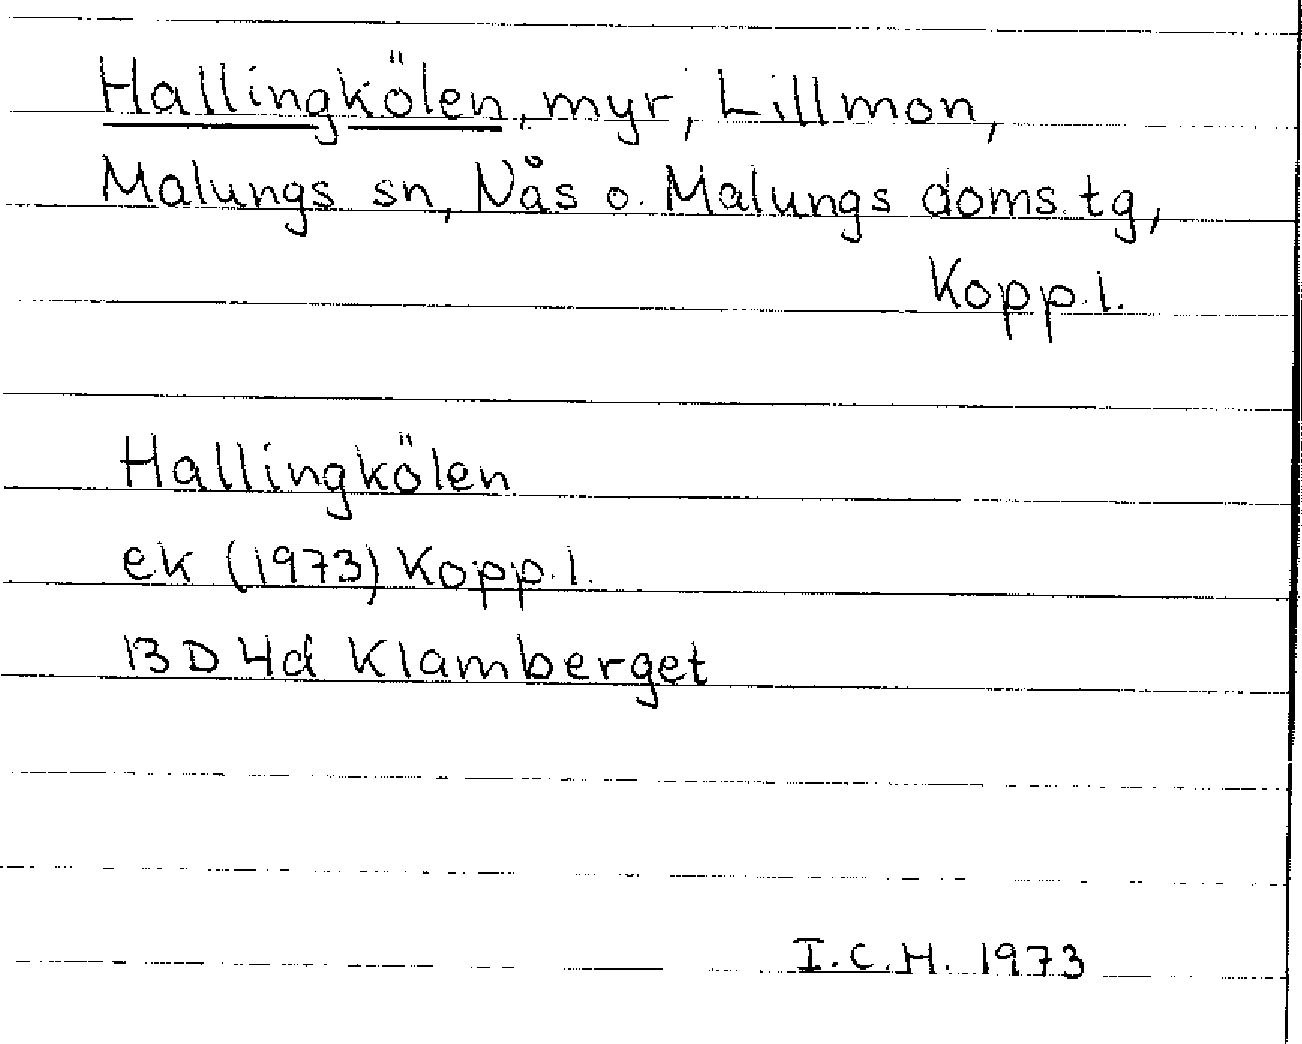 Hallingkölen, myr, Lillmon,
Malungs sn, Nås o. Malungs doms.tg,
Kopp.l.
Hallingkölen
ek (1973) Kopp.l.
13 D 4d Klamberget
I.C.H. 1973